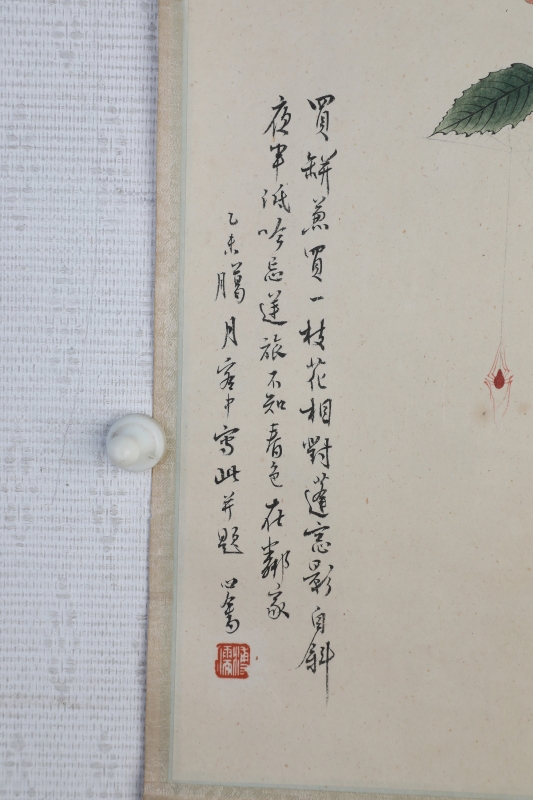 買缾兼買一枝花相對蓬窓影自斜
夜半低吟忘逆旅不知春色在鄰家
乙未臈月客中寫此并題 心畬
溥儒